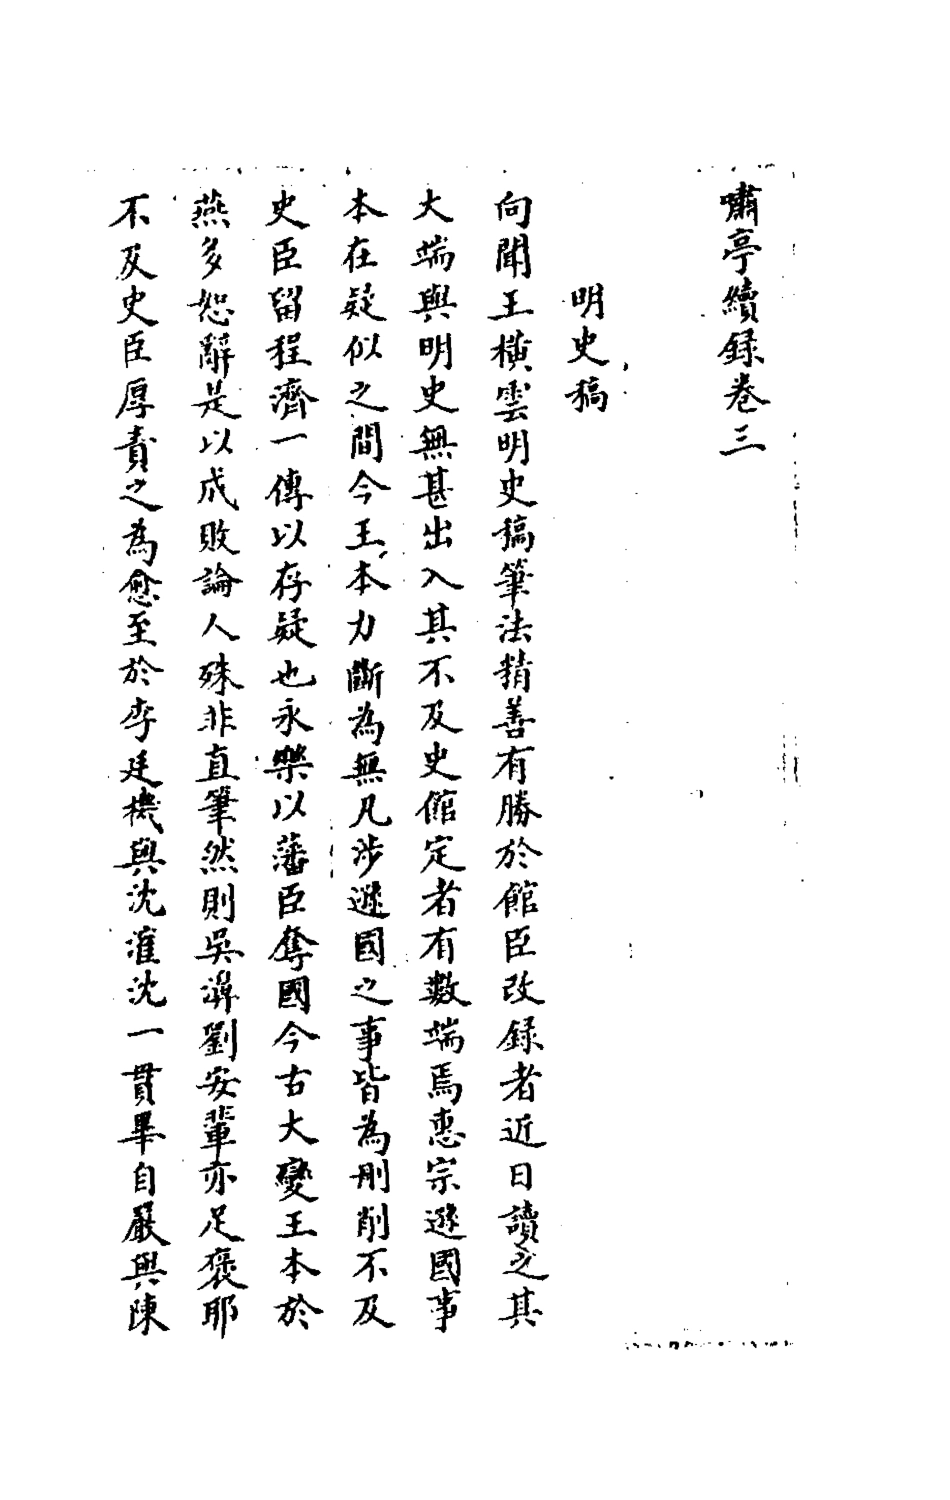 嘯亭續錄卷三
明史稿
向聞王橫雲明史稿筆法精善有勝於館臣改録者近日讀之其
大端與明史無甚出入其不及史館定者有數端焉惠宗遜國事
本在疑似之間今王本力斷為無凡涉遜國之事皆為刪削不及
史臣留程濟一傳以存疑也永樂以藩臣奪國今古大變王本於
燕多恕辭是以成敗論人殊非直筆然則吳濞劉安輩亦足褒耶
不及史臣厚責之為愈至於李廷機與沈㴶沈一貫畢自嚴與陳